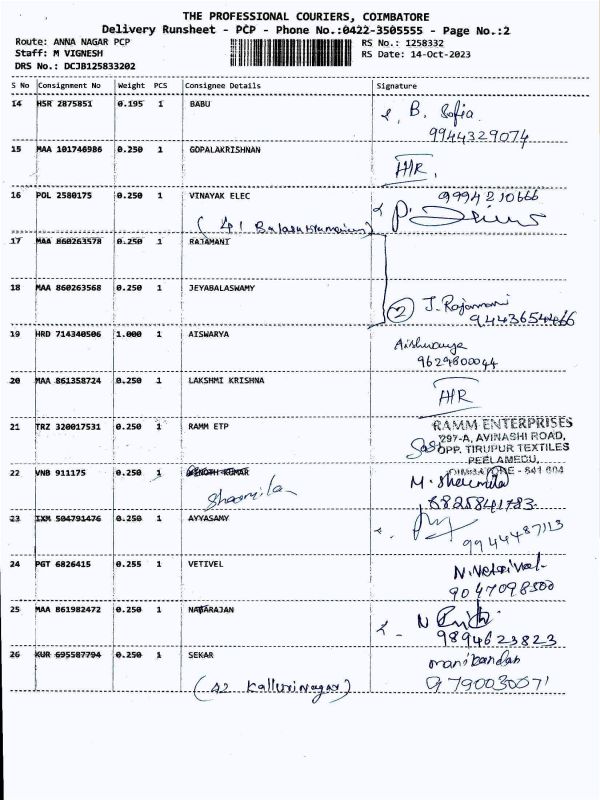 THE PROFESSIONAL COURIERS, COIMBATORE
Delivery Runsheet - PCP - Phone No.:0422-3505555 - Page No.:2
Route: ANNA NAGAR PCP RS No.: 1258332
Staff: M VIGNESH RS Date: 14-Oct-2023
DRS No.: DCJB125833202
S No Consignment No Weight PCS Consignee Details Signature
14 HSR 2875851 0.195 1 BABU B. Sofia
9944329074
15 MAA 101746986 0.250 1 GOPALAKRISHNAN
16 POL 2580175 0.250 1 VINAYAK ELEC 9994210666
17 MAA 860263578 0.250 1 RAJAMANI
18 MAA 860263568 0.250 1 JEYABALASWAMY
2 J. Rajamani
19 HRD 714340506 1.000 1 AISWARYA
Aishwarya
9629800044
20 MAA 861358724 0.250 1 LAKSHMI KRISHNA
21 TRZ 320017531 0.250 1 RAMM ETP RAMM ENTERPRISES
297-A, AVINASHI ROAD,
OPP. TIRUPUR TEXTILES
PEELAMEDU,
22 VNB 911175 0.250 1 KUMAR
Sharmila M. Sharmila
8825841783
23 IXM 504791476 0.250 1 AYYASAMY
9944487113
24 PGT 6826415 0.255 1 VETIVEL
N. Vetrivel
9047098500
25 MAA 861982472 0.250 1 NATARAJAN N
9894623823
26 KUR 695587794 0.250 1 SEKAR manikandan
(42 Kallurinagar) 9790030071